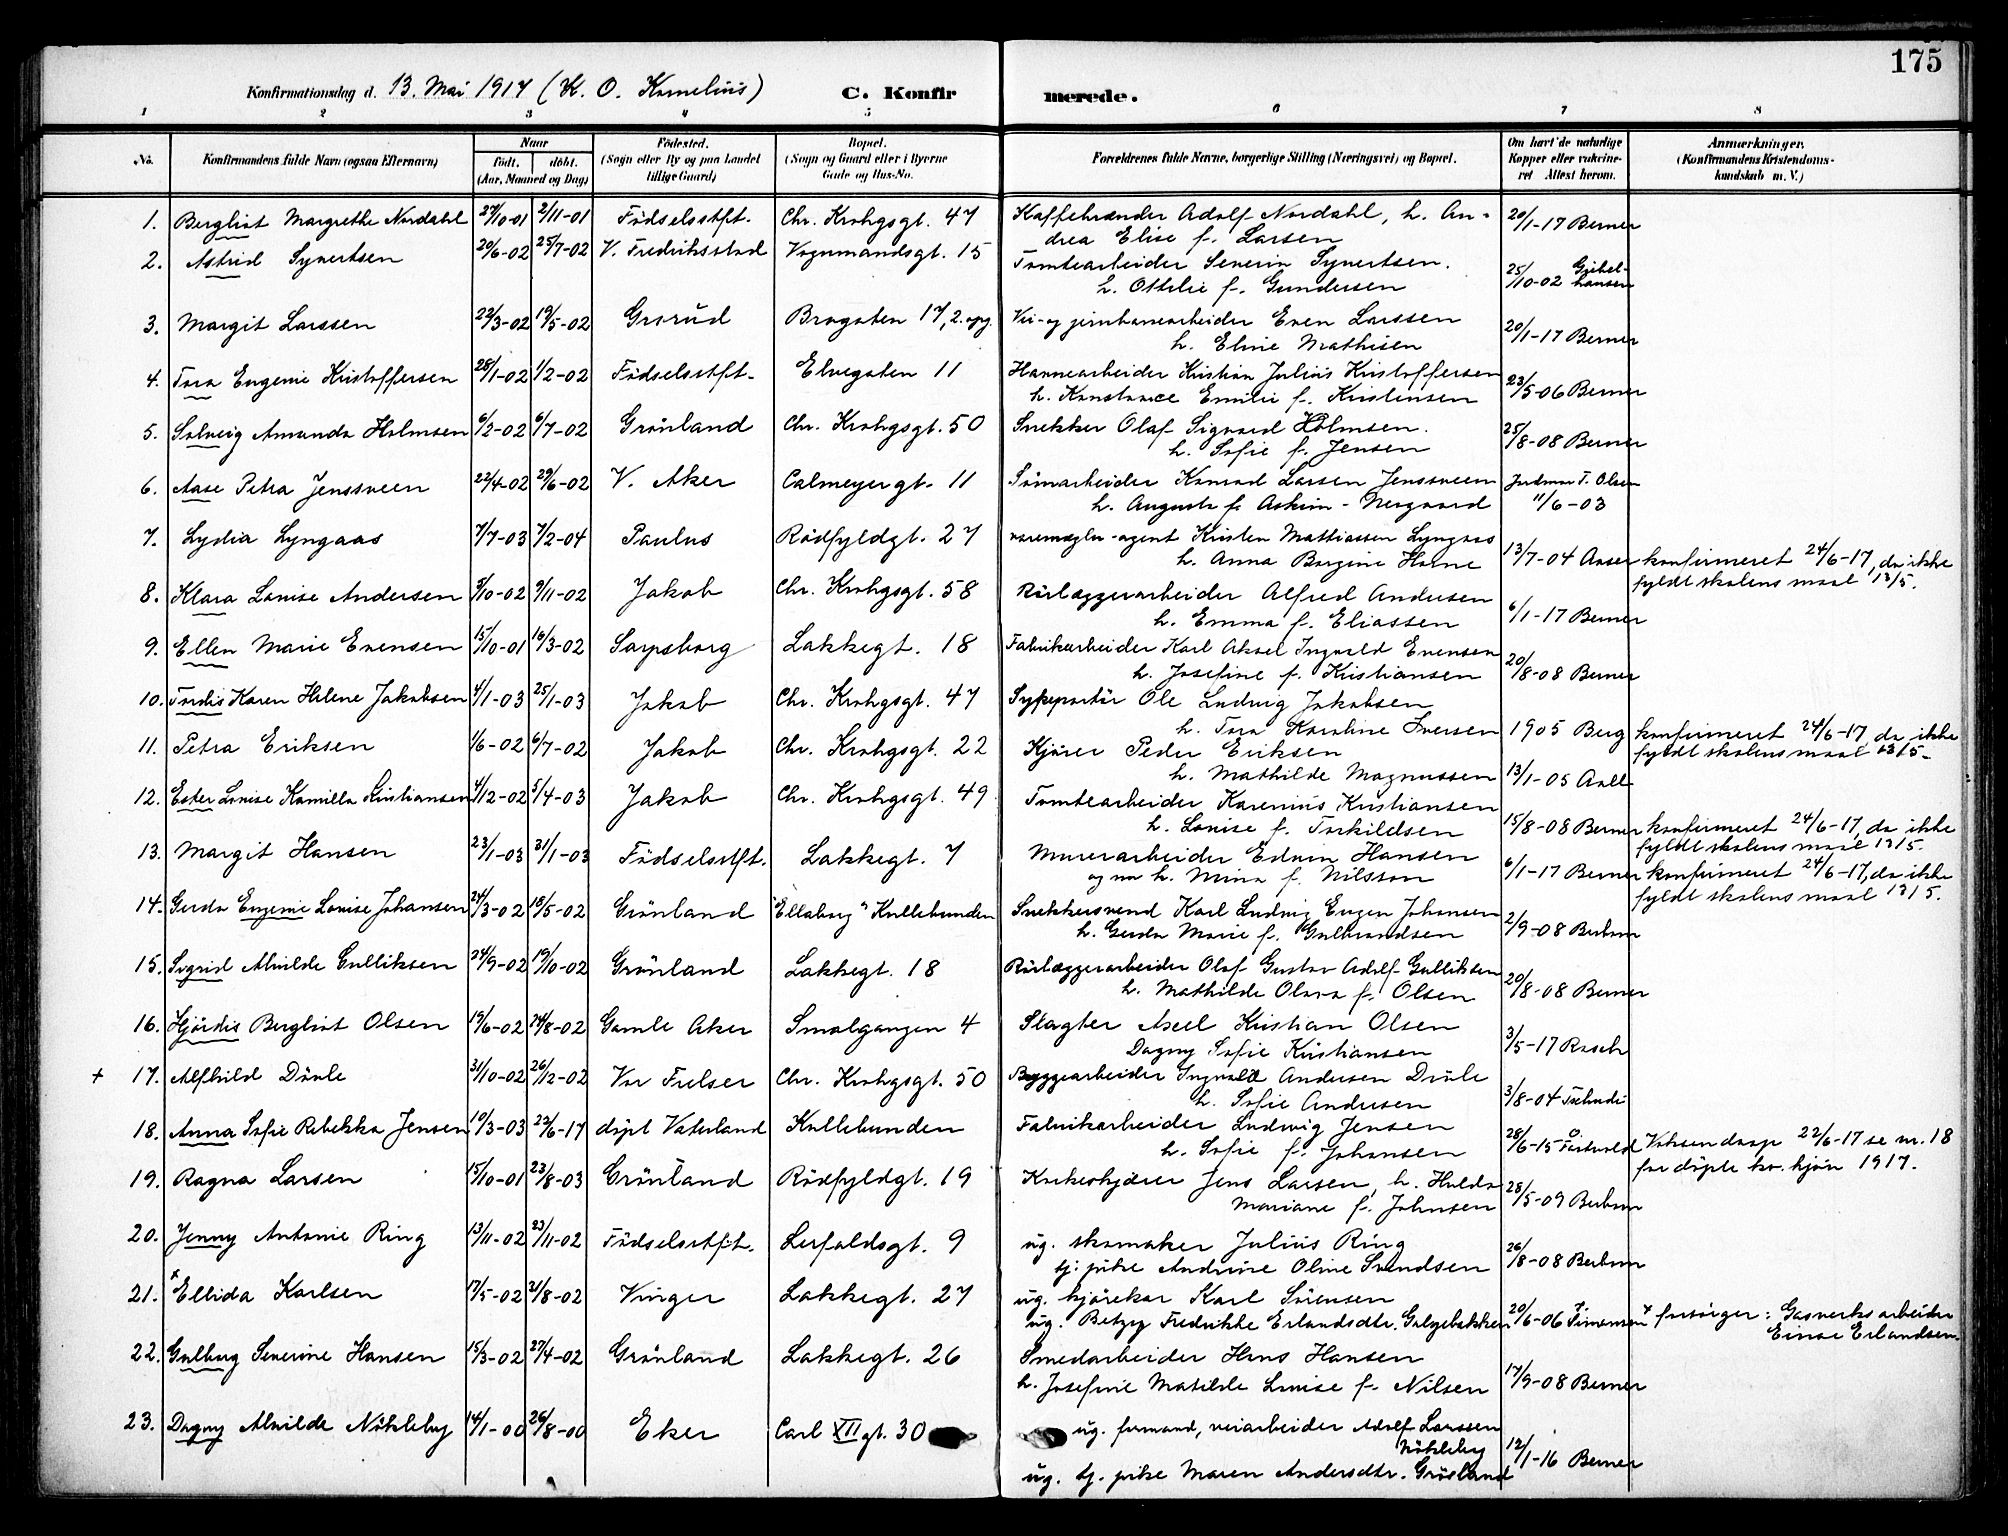 175
Konfirmationsdag d. 13. Mai 1917 (K. O. Kornelius) C. Konfirmerede.
1 2 3 4 5 6 7 8
No. Konfirmandens fulde Navn (ogsaa Efternavn) Naar født. døbt. (Aar, Maaned og Dag) Fødested. (Sogn eller By og paa Landet tillige Gaard) Bopæl. (Sogn og Gaard eller i Byerne Gade og Hus-No. Forældrenes fulde Navne, borgerlige Stilling (Næringsvei) og Bopæl. Om havt de naturlige Kopper eller vakcineret Attest herom. Anmærkninger. (Konfirmandens Kristendomskundskab m. V.)
1. Bergliot Margrethe Nordahl 27/10-01 2/11-01 Födselsstift. Chr. Krohgsgt. 47 Kaffebrænder Adolf Nordahl, h. An- 20/1-17 Berner
drea Elise f. Larsen
2. Astrid Syvertsen 20/6-02 25/7-02 V. Fredriksstad Vognmandsgt. 15 Tomtearbeider Severin Syvertsen.
h. Ottilie f. Gundersen 25/10-02
3. Margit Larssen 22/3-02 19/5-02 Grorud Brogaten 17, 2. opg. Vei- og jernbanearbeider Even Larssen
h. Eline Mathisen 20/1-17 Berner
4. Tora Eugenie Kristoffersen 28/1-02 1/2-02 Födselsstft. Elvegaten 11 Havnearbeider Kristian Julius Kristoffersen
h. Konstance Emilie f. Kristensen 23/5-06 Berner
5. Solveig Amanda Holmsen 6/2-02 6/7-02 Grönland Chr. Krohgsgt. 50 Snekker Olaf Sigvard Holmsen.
h. Sofie f. Jensen 25/8-08 Berner
6. Aase Petra Jenssveen 22/4-02 29/6-02 V. Aker Calmeyergt. 11 Tömarbeider Konrad Larsen Jenssveen Jordmor T. Olsen
h. Augusta f. Askim - Nergaard 11/6-03
7. Lydia Lyngaas 7/7-03 7/2-04 Paulus Rödfyldgt. 27 varemægler-agent Kristen Mathiassen Lyngaas
h. Anna Bergine Horne 13/7-04 Aaser konfirmeret 24/6-17, da ikke
fyldt skolens maal 13/5.
8. Klara Louise Andersen 3/10-02 9/11-02 Jakob Chr. Krohgsgt. 58 Rörlæggerarbeider Alfred Andersen
h. Emma f. Eliassen 6/1-17 Berner
9. Ellen Marie Evensen 15/10-01 16/3-02 Sarpsborg Lakkegt. 18 Fabrikarbeider Karl Aksel Ingvald Evensen
h. Josefine f. Kristiansen 20/8-08 Berner
10. Tordis Karen Helene Jakobsen 4/1-03 25/1-03 Jakob Chr. Krohgsgt. 47 Sykeportör Ole Ludvig Jakobsen
h. Tora Karoline Iversen 1905 Berg konfirmeret 24/6-17, da ikke
fyldt skolens maal 13/5.
11. Petra Eriksen 1/6-02 6/7-02 Jakob Chr. Krohgsgt. 22 Kjörer Peder Eriksen
h. Mathilde Magnussen 13/1-05 Aall
12. Ester Louise Kamilla Kristiansen 4/12-02 5/4-03 Jakob Chr. Krohgsgt. 49 Tomtearbeider Karenius Kristiansen
h. Louise f. Torkildsen 15/8-08 Berner konfirmeret 24/6-17, da ikke
fyldt skolens maal 13/5.
13. Margit Hansen 23/1-03 31/1-03 Födselsstft. Lakkegt. 7 Murerarbeider Edvin Hansen
og nu h. Mina f. Nilsson 6/1-17 Berner konfirmeret 24/6-17, da ikke
fyldt skolens maal 13/5.
14. Gerda Eugenie Louise Johansen 24/3-02 18/5-02 Grönland "Ellaborg" Kullebunden Snekkersvend Karl Ludvig Eugen Johansen
h. Gerda Marie f. Gulbrandsen 2/9-08 Berbom
15. Sigrid Alvilde Gulliksen 24/9-02 19/10-02 Grönland Lakkegt. 18 Rörlæggerarbeider Olaf Gustav Adolf Gulliksen
h. Mathilde Olava f. Olsen 20/8-08 Berner
16. Hjördis Bergliot Olsen 19/6-02 24/8-02 Gamle Aker Smalgangen 4 Slagter Axel Kristian Olsen
Dagny Sofie Kristiansen 3/5-17 Rasch
+ 17. Alfhild Dövle 31/10-02 26/12-02 Vor Frelser Chr. Krohgsgt. 50 Byggearbeider Ingvald Andersen Dövle
h. Sofie Andersen 3/8-04 Tschudi
18. Anna Sofie Rebekka Jensen 10/3-03 22/6-17 döpt Vaterland Kullebunden Fabrikarbeider Ludvig Jensen
h. Sofie f. Johansen 28/6-15 Voksendaap 22/6-17 se nr. 18
for döpte kv. kjön 1917.
19. Ragna Larsen 15/10-01 23/8-03 Grönland Rödfyldgt. 19 Jens Larsen, h. Hulda
Mariane f. Johnsen 28/5-09 Berbom
20. Jenny Antonie Ring 13/11-02 23/11-02 Födselsstft. Lerfaldsgt. 9 ug. skomaker Julius Ring
tj. pike Andrine Oline Svendsen 26/8-08 Berbom
21. x Ellida Karlsen 17/5-02 31/8-02 Vinger Lakkegt. 27 ug. kjörekar Karl Sörensen
ug. Betzy Fredrikke Erlandsdtr. Galgebakken 20/6-06 x forsörger: Gasverksarbeider
Einar Erlandsen.
22. Gulborg Severine Hansen 15/3-02 27/4-02 Grönland Lakkegt. 26 Smedarbeider Hans Hansen
h. Josefine Matilde Louise f. Nilsen 17/9-08 Berner
23. Dagny Alvilde Nökleby 14/1-00 26/8-00 Eker Carl XII gt. 30 ug. formand, veiarbeider Adolf Larssen
Nökleby 12/1-16 Berner
ug. tj. pike Maren Andersdtr. Grösland